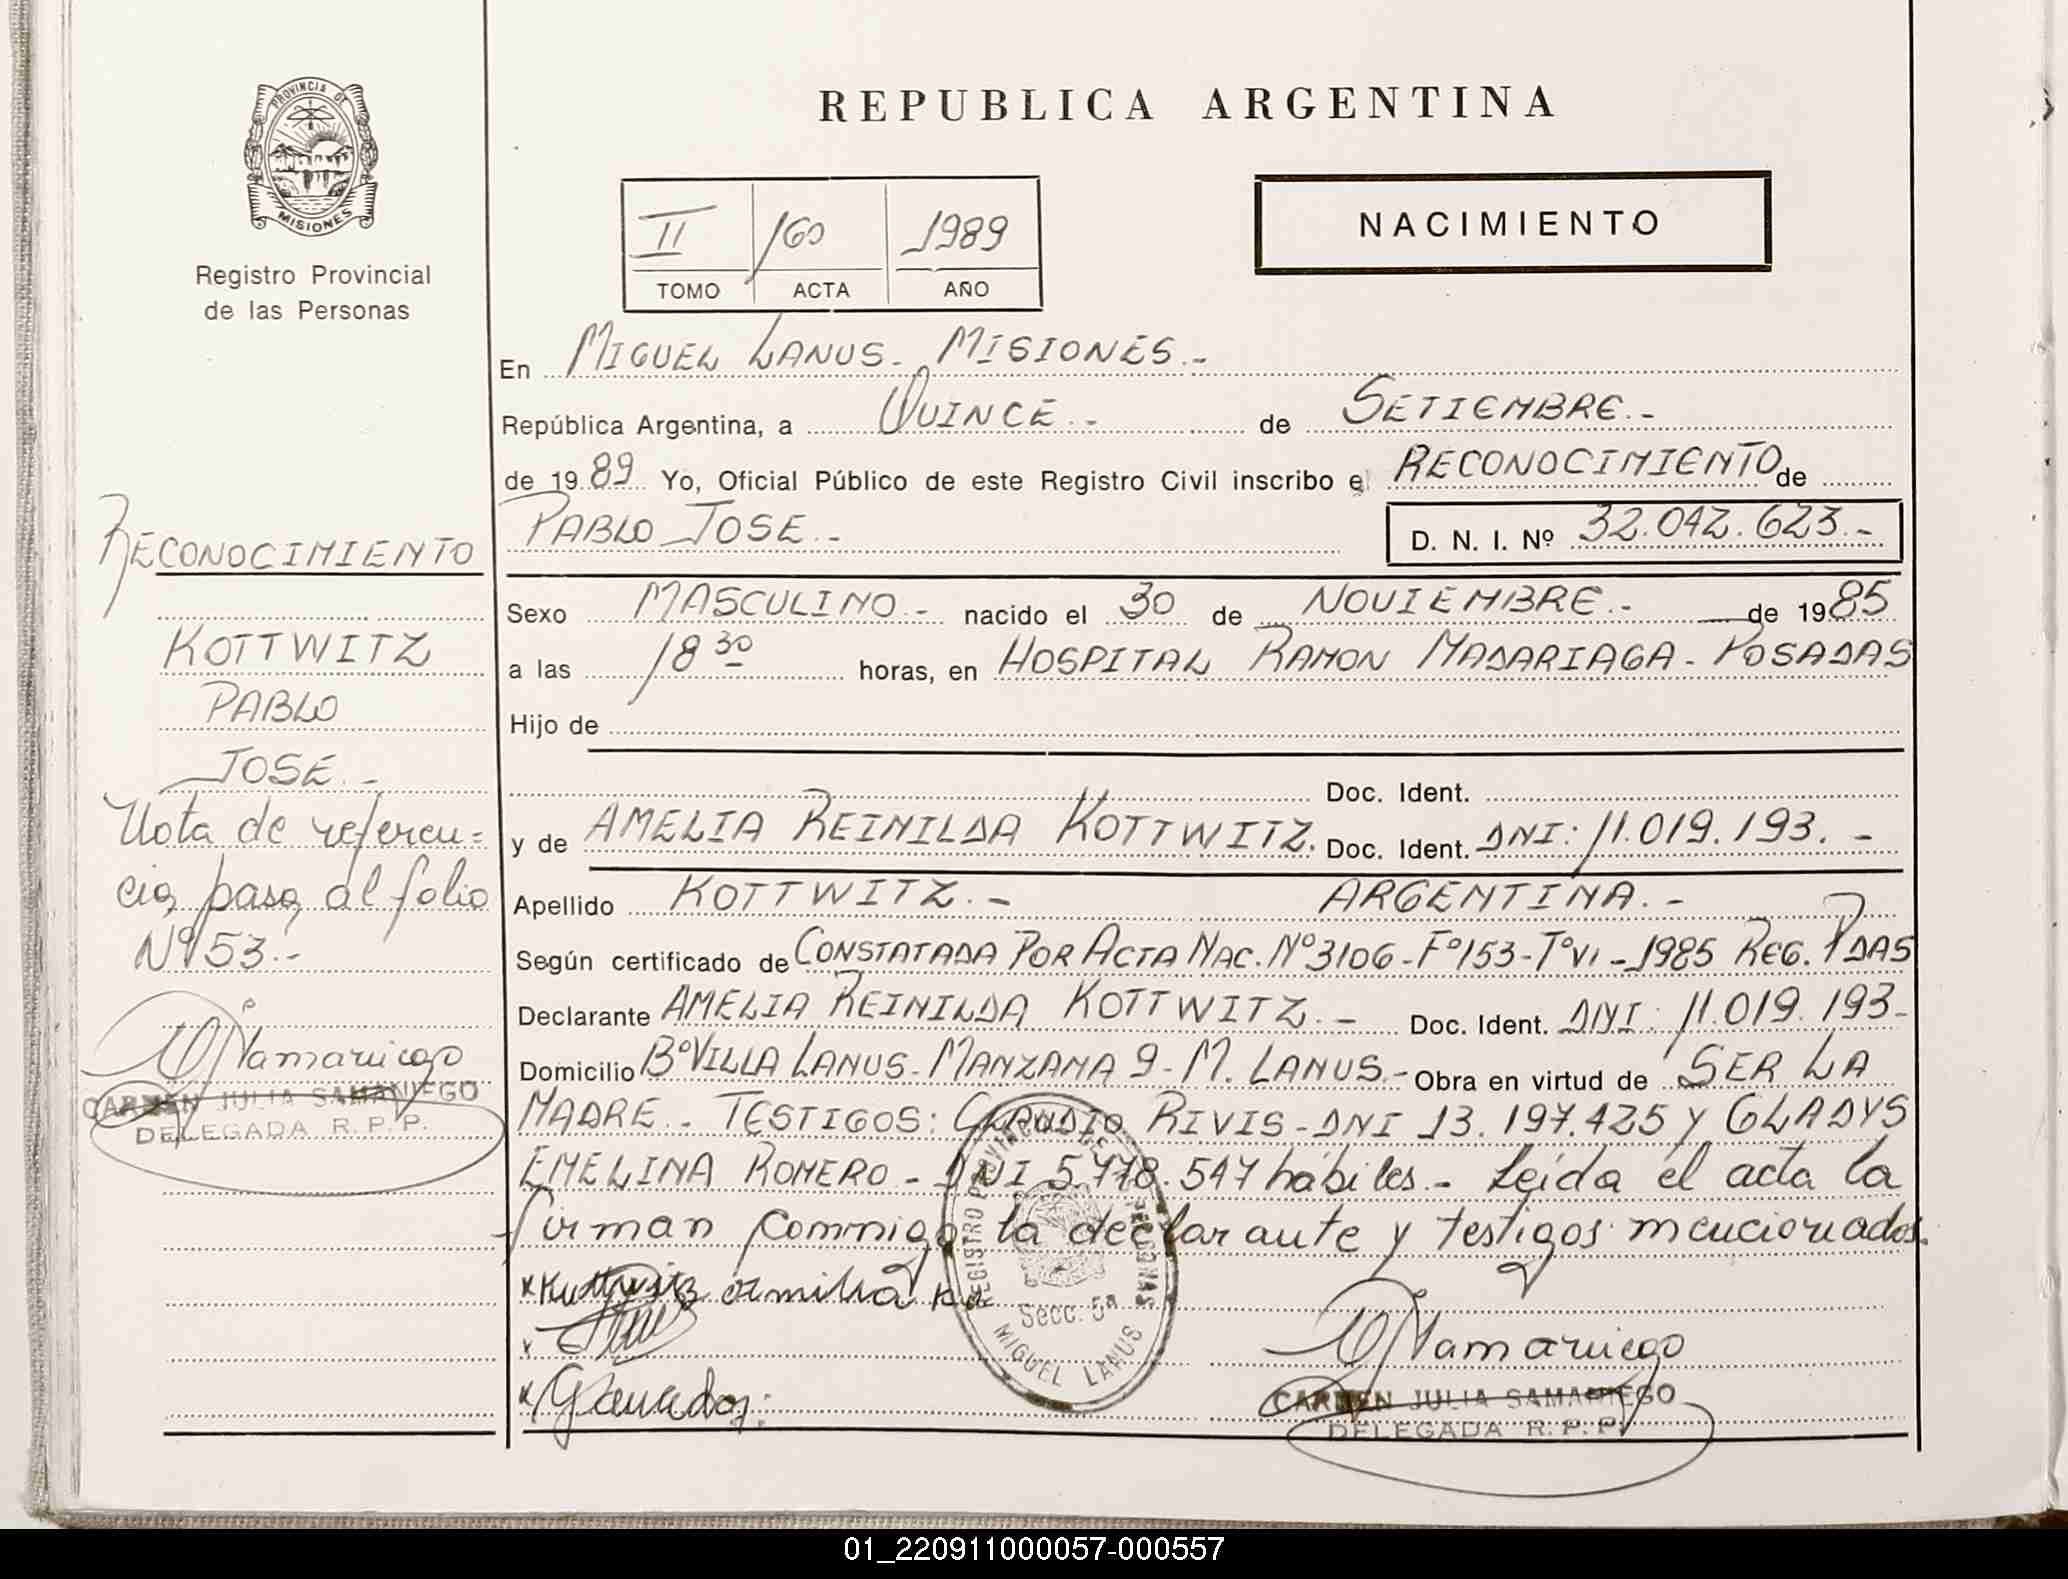 PROVINCIA DE
MISIONES
Registro Provincial
de las Personas
RECONOCIMIENTO
KOTTWITZ
PABLO
JOSE.-
Nota de referen=
cia pasa al folio
Nº 53.-
CARMEN JULIA SAMANIEGO
DELEGADA R. P. P.
REPUBLICA ARGENTINA
II 160 1989
TOMO ACTA AÑO
NACIMIENTO
En MIGUEL LANUS - MISIONES.-
República Argentina, a QUINCE.- de SETIEMBRE.-
de 1989 Yo, Oficial Público de este Registro Civil inscribo el RECONOCIMIENTO de
PABLO JOSE.- D. N. I. Nº 32.042.623.-
Sexo MASCULINO.- nacido el 30 de NOVIEMBRE.- de 1985
a las 18 30 horas, en HOSPITAL RAMON MADARIAGA - POSADAS
Hijo de
Doc. Ident.
y de AMELIA REINILDA KOTTWITZ. Doc. Ident. DNI: 11.019.193.-
Apellido KOTTWITZ.- ARGENTINA.-
Según certificado de CONSTATADA POR ACTA NAC. Nº 3106 - Fº 153 - Tº VI - 1985 REG. PDAS
Declarante AMELIA REINILDA KOTTWITZ.- Doc. Ident. DNI: 11.019.193-
Domicilio Bº VILLA LANUS - MANZANA 9 - M. LANUS.- Obra en virtud de SER LA
MADRE.- TESTIGOS: CLAUDIO RIVIS - DNI 13.197.425 y GLADYS
EMELINA ROMERO - DNI 5.778.547 hábiles.- Leída el acta la
firman conmigo la declarante y testigos mencionados.
REGISTRO PROVINCIAL DE LAS PERSONAS
Secc. 5ª
MIGUEL LANUS
CARMEN JULIA SAMANIEGO
DELEGADA R. P. P.
01_220911000057-000557